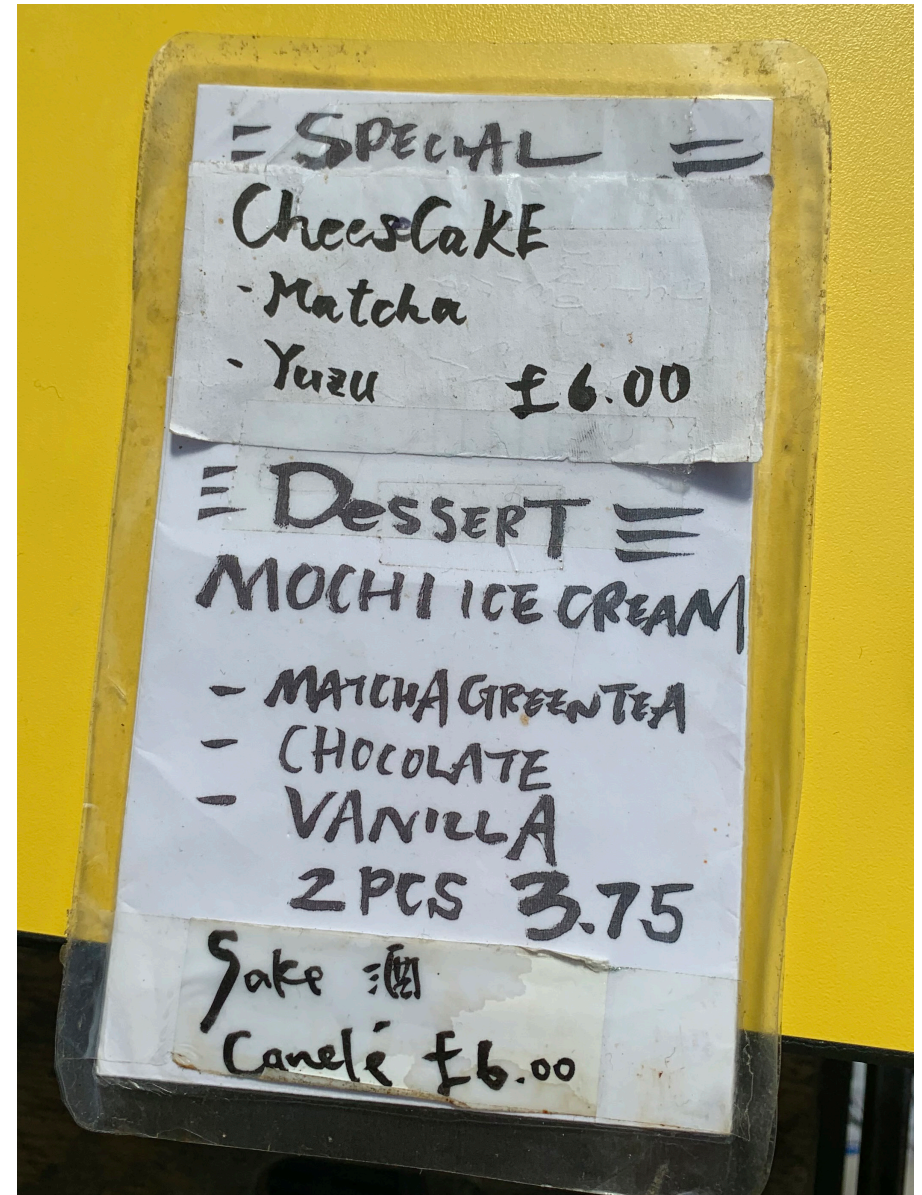 = SPECIAL =
CheesCaKE
- Matcha
- Yuzu £6.00
≡ DeSSERT ≡
MOCHI ICE CREAM
- MATCHA GREEN TEA
- CHOCOLATE
- VANILLA
2 PCS 3.75
Sake 酒
Canelé £6.00